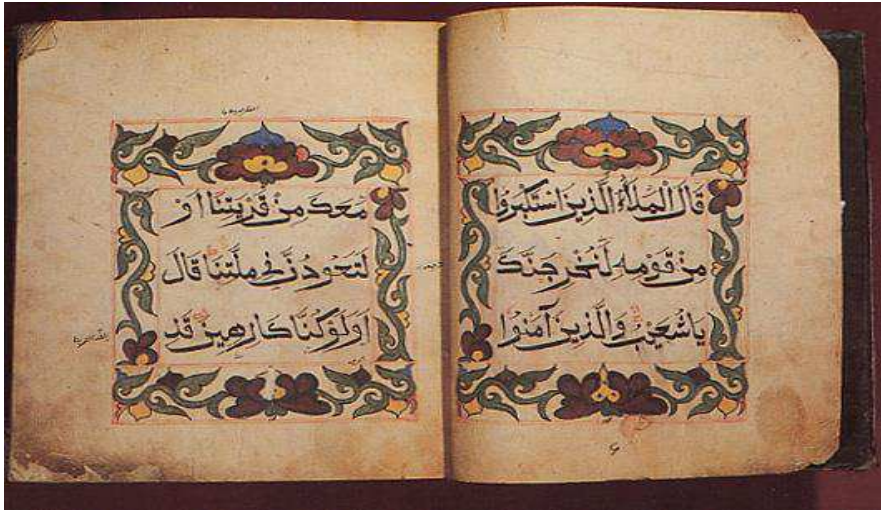 قَالَ الْمَلَأُ الَّذِينَ اسْتَكْبَرُوا
مِنْ قَوْمِهِ لَنُخْرِجَنَّكَ
يَاشُعَيْبُ وَالَّذِينَ آمَنُوا
مَعَكَ مِنْ قَرْيَتِنَا اَوْ
لَتَعُودُنَّ فِى مِلَّتِنَا قَالَ
اَوَلَوْ كُنَّا كَارِهِينَ قَدِ